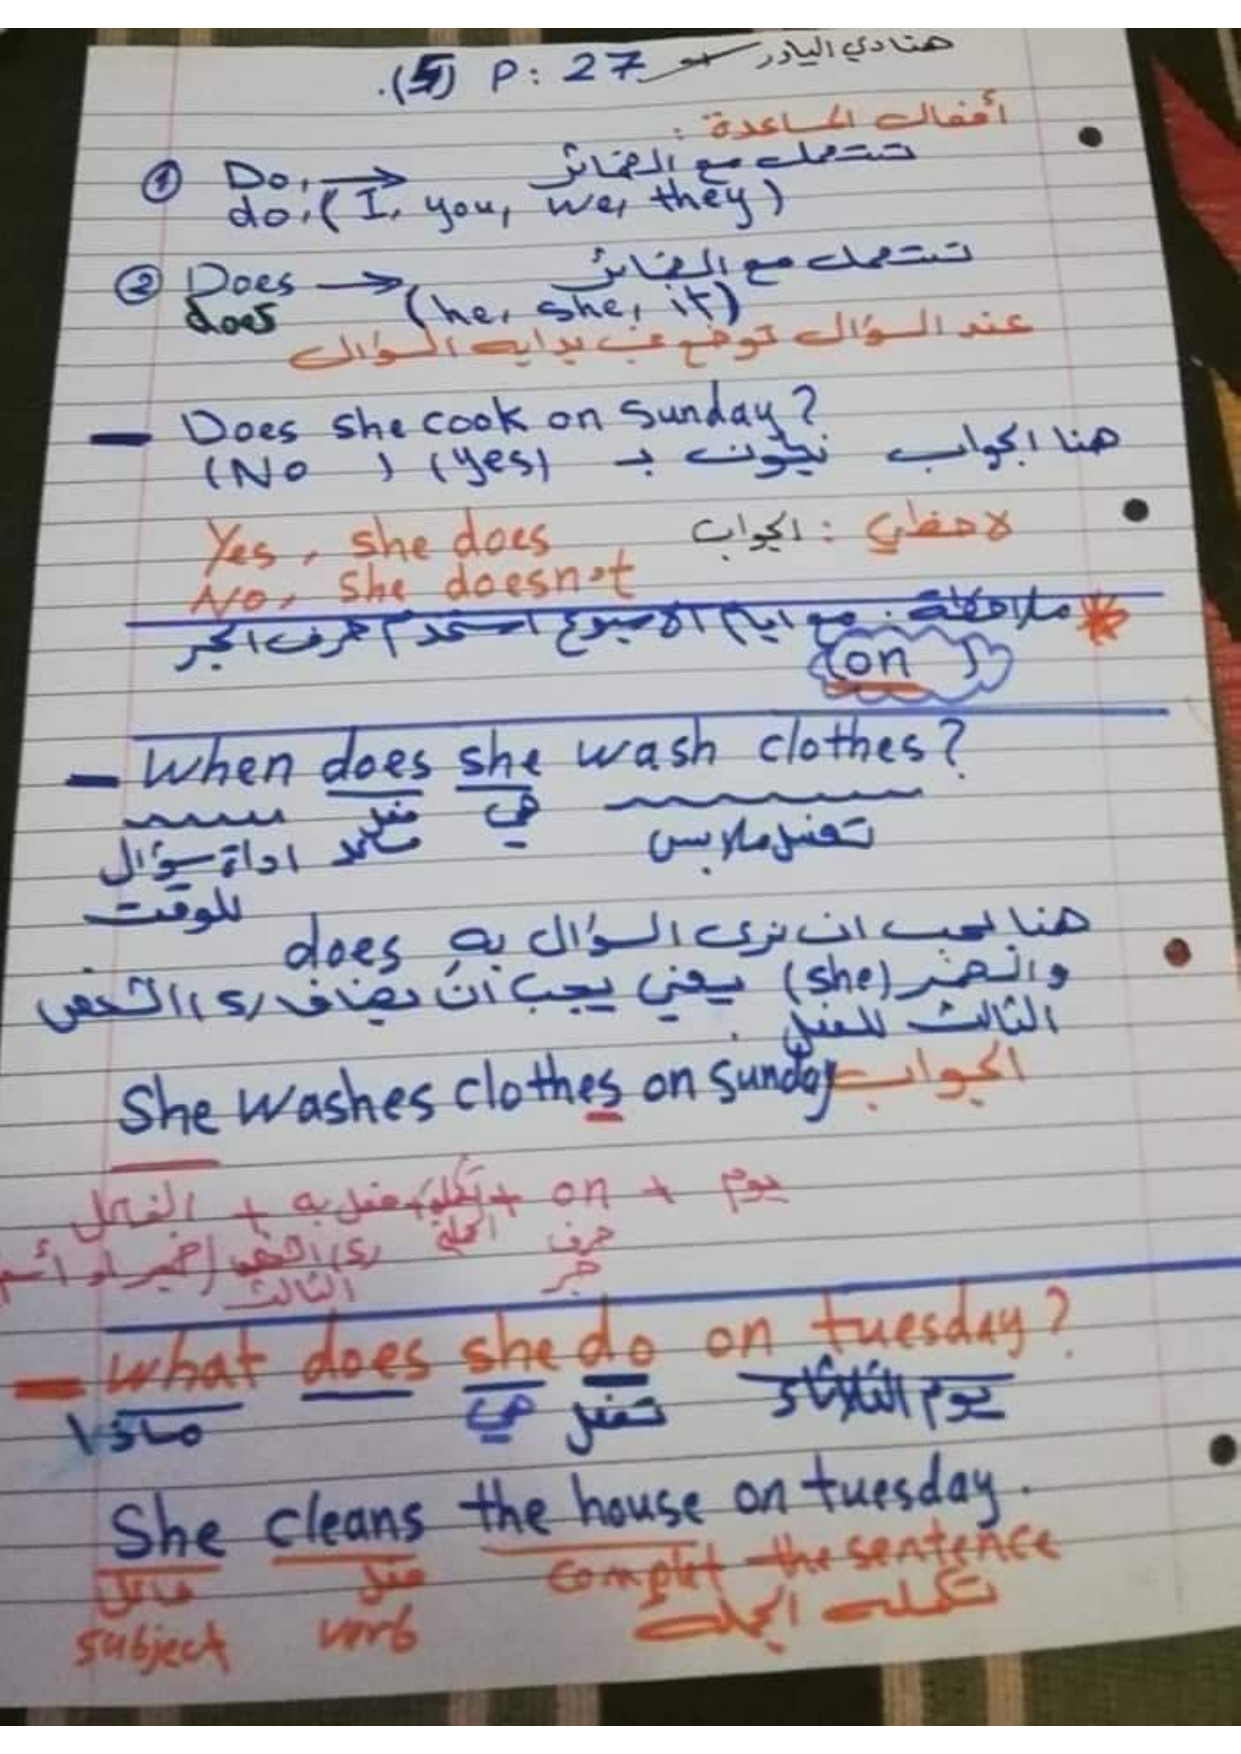 (5) P: 27 هنادي البادر
أفعال المساعدة :
① Do, → تستعمل مع الضمائر
do, ( I, you, we, they )
② Does → تستعمل مع الضمائر
does (he, she, it)
عند السؤال توضع في بدايه السؤال
Does she cook on Sunday?
هنا الجواب نيكون بـ (yes) (No )
لاحظي : الجواب Yes, she does
No, she doesnot
ملاحظة : مع ايام الاسبوع استخدم حرف الجر
(on )
When does she wash clothes?
تغسل ملابس هي فعل
مساعد اداة سؤال
للوقت
هنا يجب ان نرى السؤال به does
والضمير (she) يعني يجب ان يضاف (s) الشخص
الثالث للفعل .
She washes clothes on Sunday الجواب
الفاعل + فعل به + تكملة + on + يوم
(ضمير او أسم) (s) الشخص الثالث الجملة حرف جر
What does she do on tuesday?
ماذا هي تفعل يوم الثلاثاء
She cleans the house on tuesday.
فاعل فعل complet the sentence
subject verb تكمله الجمله